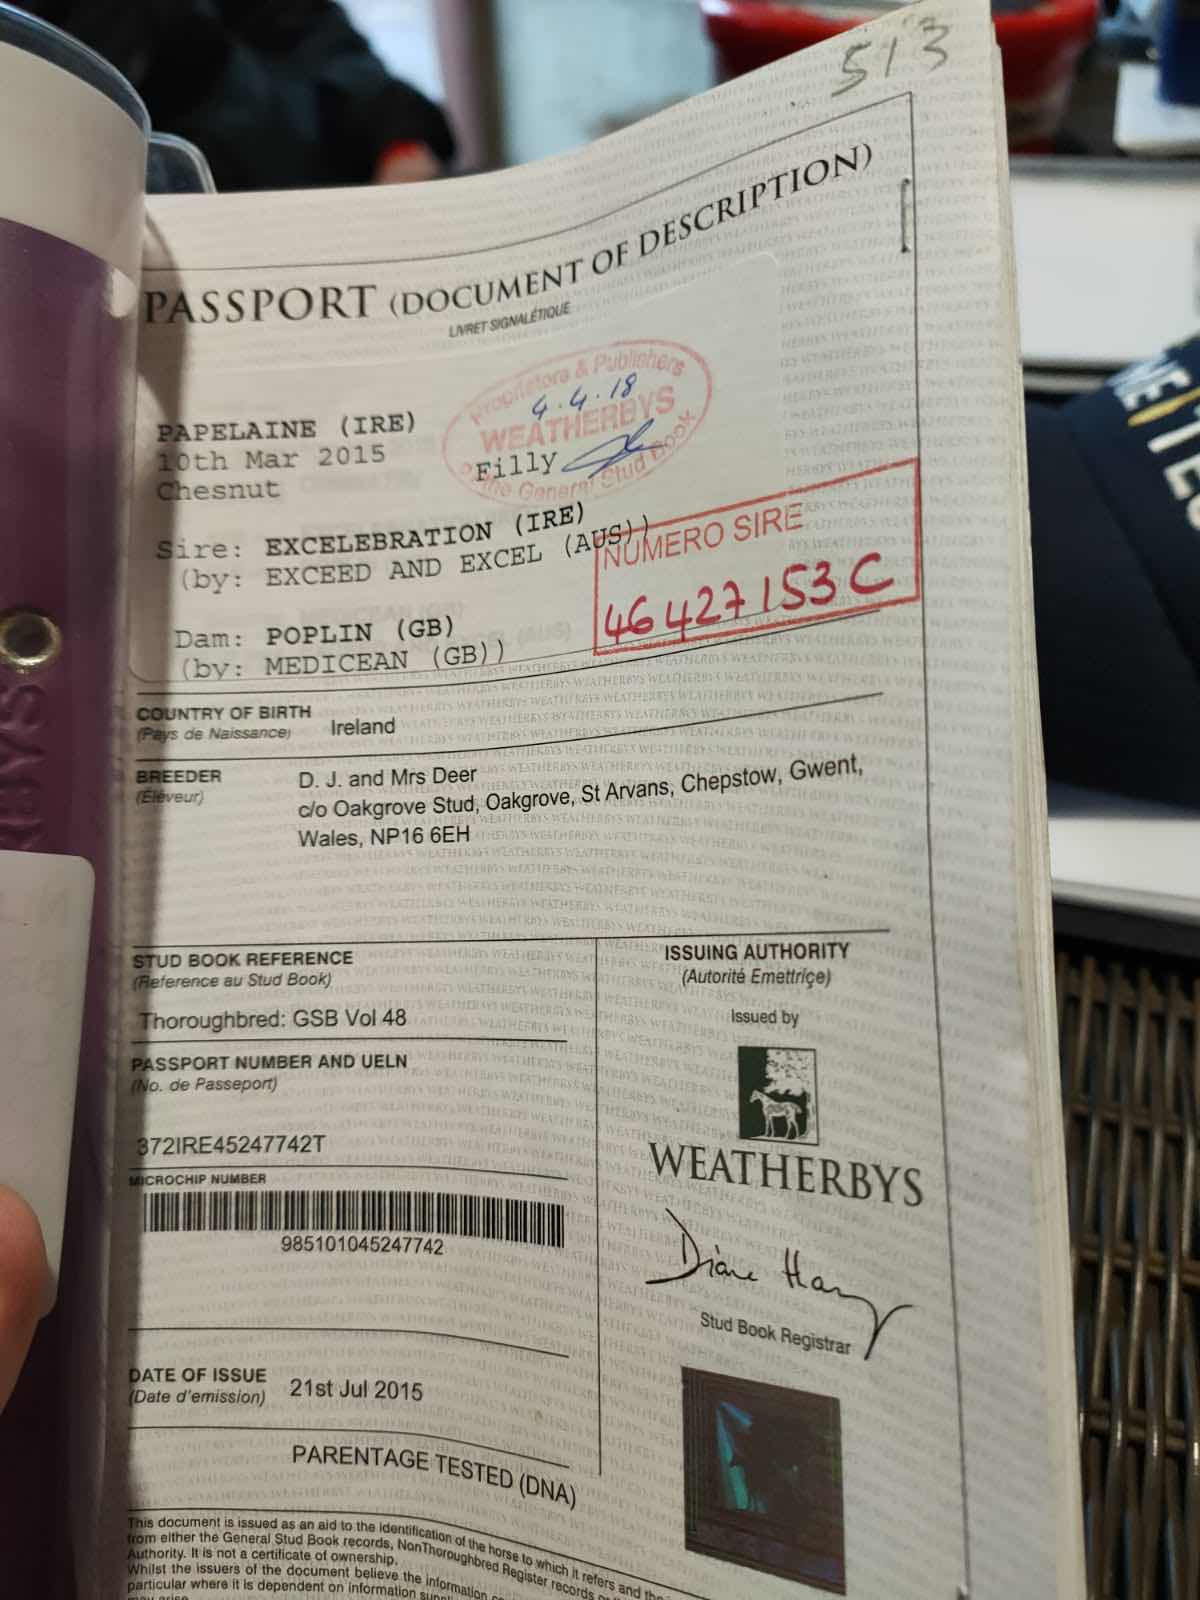 513
PASSPORT (DOCUMENT OF DESCRIPTION)
LIVRET SIGNALÉTIQUE
Proprietors & Publishers
4.4.18
WEATHERBYS
of The General Stud Book
PAPELAINE (IRE)
10th Mar 2015 Filly
Chesnut
Sire: EXCELEBRATION (IRE)
(by: EXCEED AND EXCEL (AUS))
NUMERO SIRE
46427153C
Dam: POPLIN (GB)
(by: MEDICEAN (GB))
COUNTRY OF BIRTH Ireland
(Pays de Naissance)
BREEDER D. J. and Mrs Deer
(Éleveur) c/o Oakgrove Stud, Oakgrove, St Arvans, Chepstow, Gwent,
Wales, NP16 6EH
STUD BOOK REFERENCE
(Reference au Stud Book)
Thoroughbred: GSB Vol 48
PASSPORT NUMBER AND UELN
(No. de Passeport)
372IRE45247742T
MICROCHIP NUMBER
985101045247742
DATE OF ISSUE 21st Jul 2015
(Date d'emission)
PARENTAGE TESTED (DNA)
ISSUING AUTHORITY
(Autorité Emettriçe)
Issued by
WEATHERBYS
Stud Book Registrar
This document is issued as an aid to the identification of the horse to which it refers and the
from either the General Stud Book records, NonThoroughbred Register records
Authority. It is not a certificate of ownership.
Whilst the issuers of the document believe the information
particular where it is dependent on information
may arise